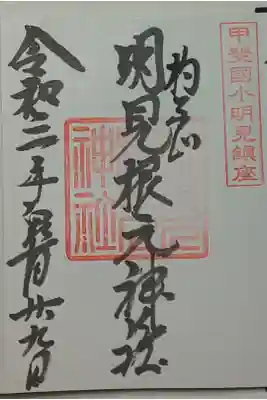 甲斐國小明見鎮座
杓子山
明見根元神社
神社
令和二年 月廿九日